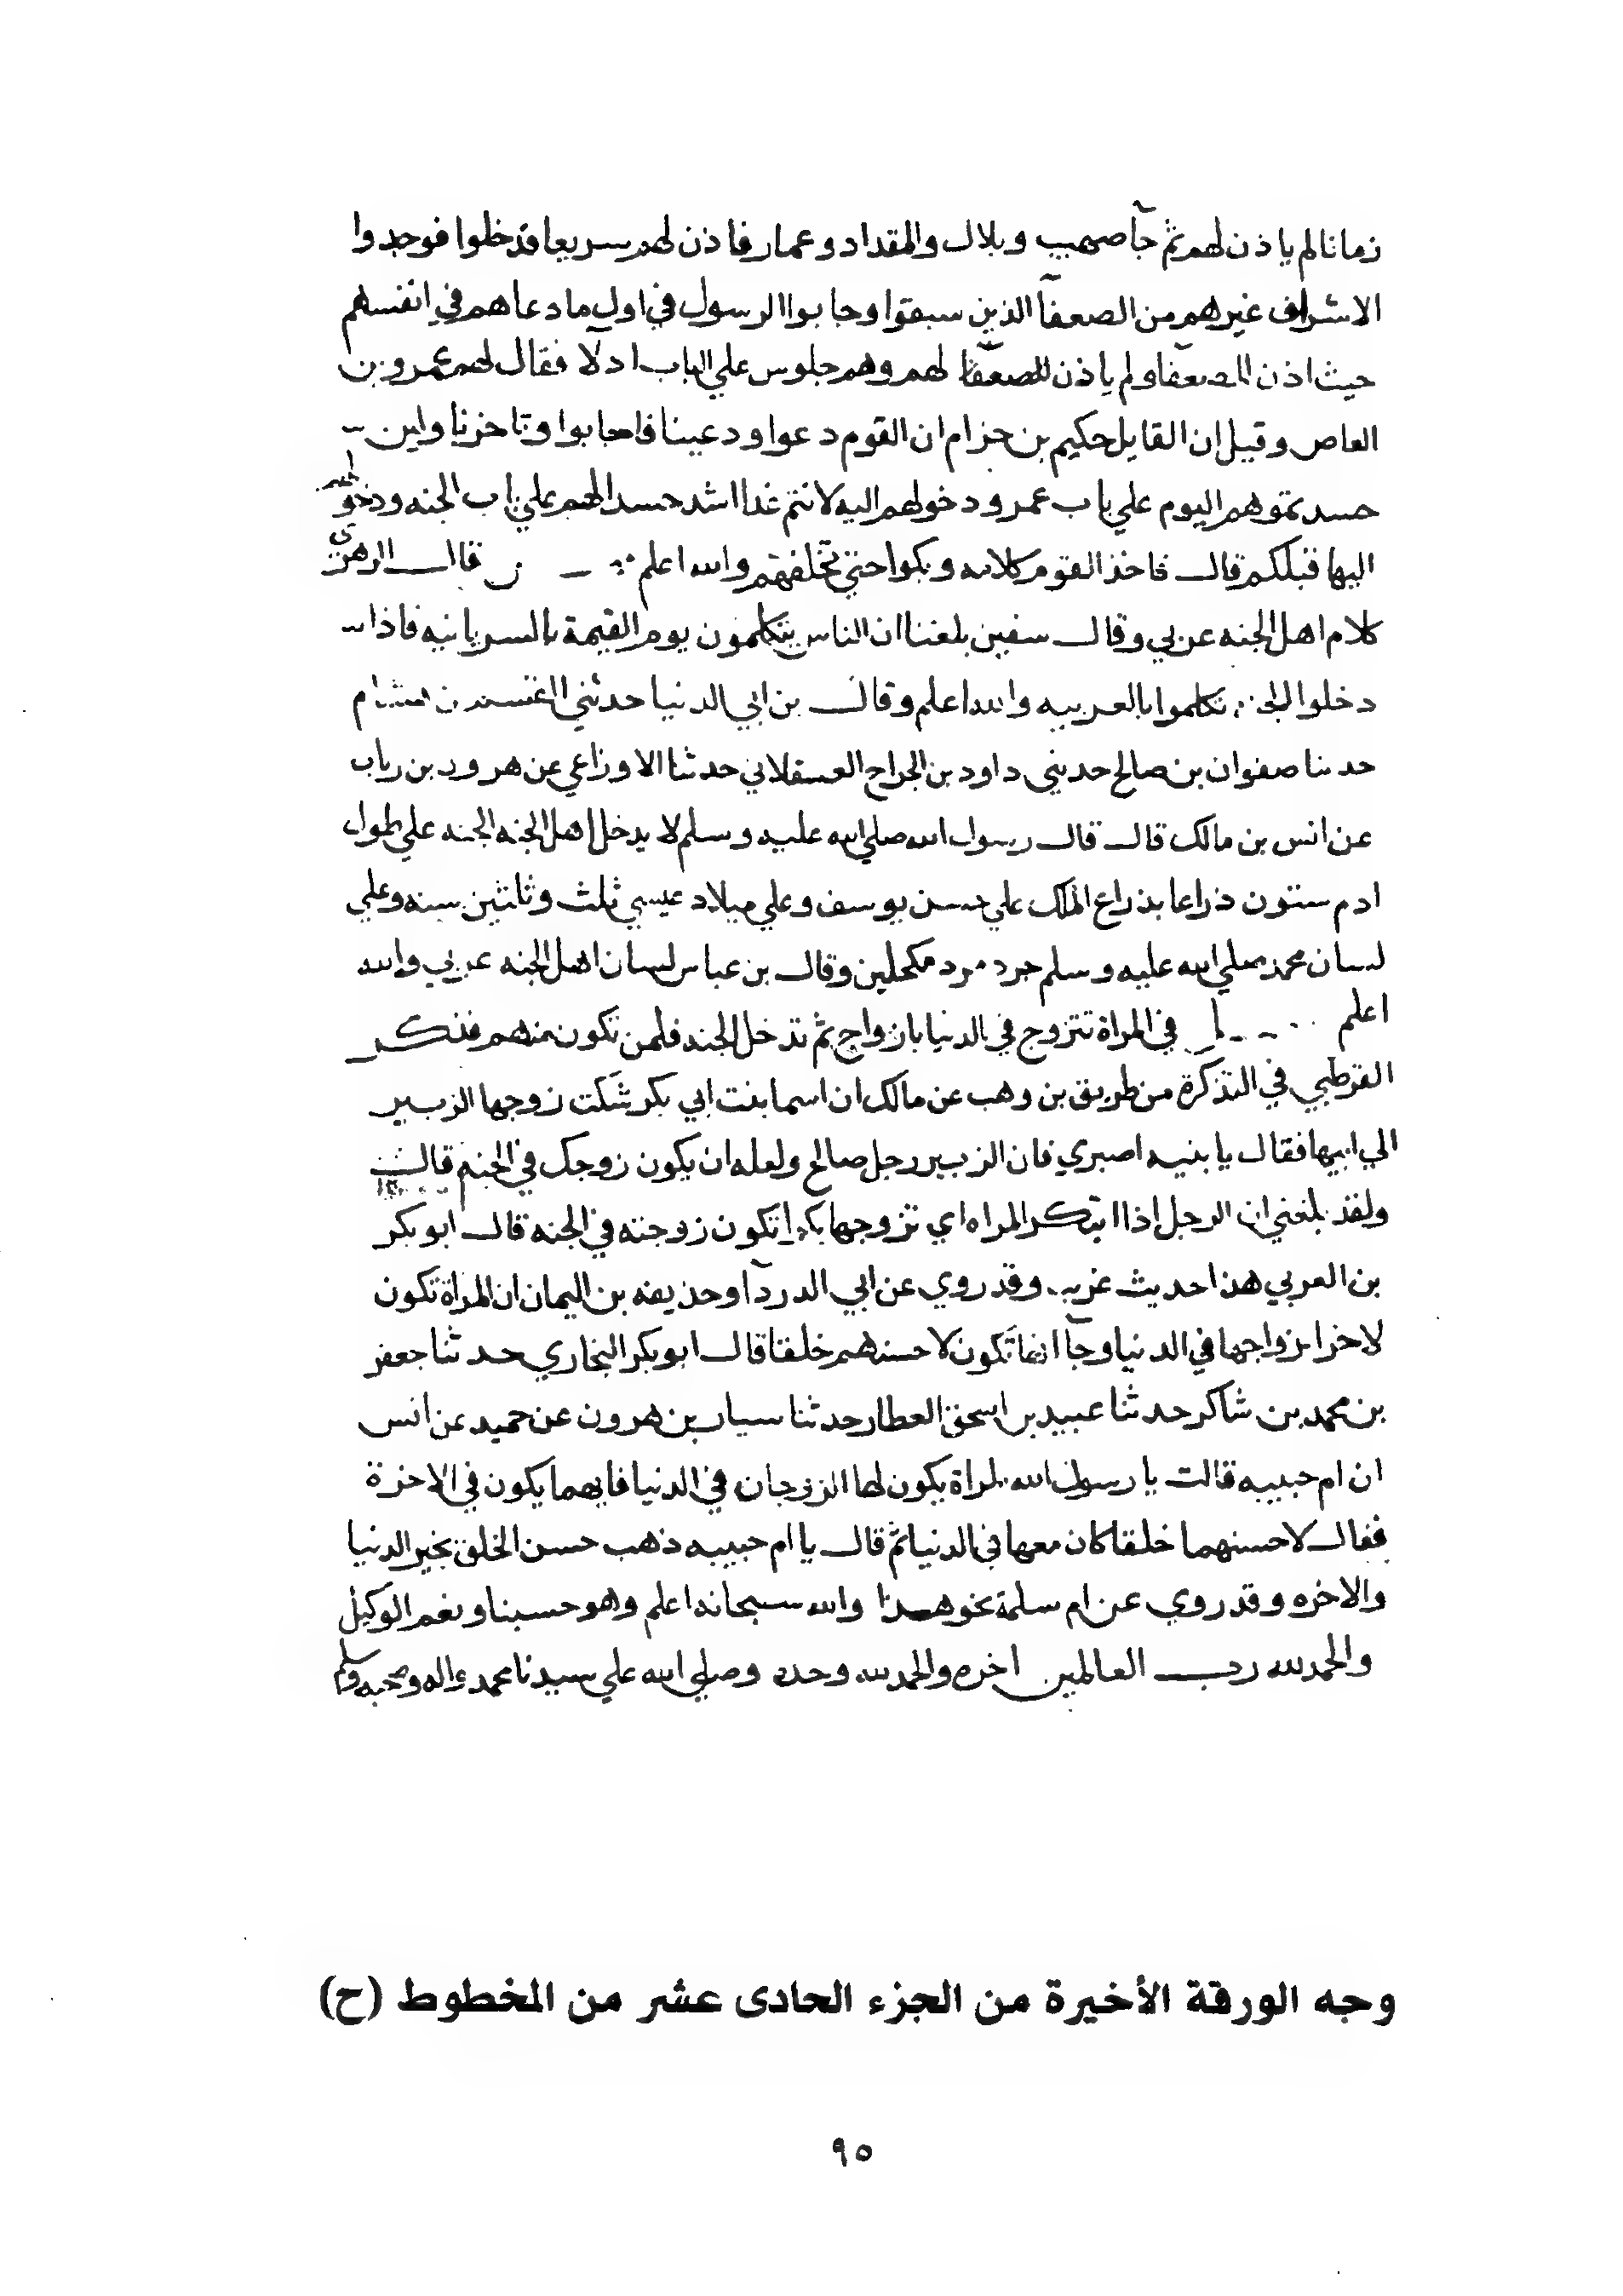 زمانا لم ياذن لهم ثم جآ صهيب وبلال والمقداد وعمار فاذن لهم سريعا فدخلوا فوجدوا
الاشراف غيرهم من الضعفآ الذين سبقوا وجابوا الرسول في اول ما دعاهم في انفسهم
حيث اذن للضعفآ ولم ياذن لهم وهم جلوس علي الباب اذلآ فقال لهم عمرو بن
العاص وقيل ان القايل حكيم بن حزام ان القوم دعوا ودعينا فاجابوا وتاخرنا واين
حسدتموهم اليوم علي باب عمر ودخولهم اليه لانتم غدا اشد حسدا لهم علي باب الجنه ودخولهم
اليها قبلكم قال فاخذ القوم كلامه وبكوا حتي تخلفهم والله اعلم قال الزهري
كلام اهل الجنه عربي وقال سفين بلغنا ان الناس يتكلمون يوم القيمة بالسريانيه فاذا
دخلوا الجنه تكلموا بالعربيه والله اعلم وقال بن ابي الدنيا حدثني هشام
حدثنا صفوان بن صالح حدثني داود بن الجراح العسقلاني حدثنا الاوزاعي عن هرون بن رياب
عن انس بن مالك قال قال رسول الله صلي الله عليه وسلم لا يدخل اهل الجنه الجنه علي طول
ادم ستون ذراعا بذراع الملك علي حسن يوسف وعلي ميلاد عيسي ثلث وثلثين سنه وعلي
لسان محمد صلي الله عليه وسلم جرد مرد مكحلين وقال بن عباس لسان اهل الجنه عربي والله
اعلم في المراة تتزوج في الدنيا بازواج ثم تدخل الجنه فلمن تكون منهم فذكر
القرطبي في التذكرة من طريق بن وهب عن مالك ان اسما بنت ابي بكر شكت زوجها الزبير
الي ابيها فقال يا بنيه اصبري فان الزبير رجل صالح ولعله ان يكون زوجك في الجنه قال
ولقد بلغني ان الرجل اذا ابتكر المراه اي تزوجها بكرا تكون زوجته في الجنه قال ابو بكر
بن العربي هذا حديث غريب وقد روي عن ابي الدردآ وحذيفه بن اليمان ان المراة تكون
لاخر ازواجها في الدنيا وجآ انها تكون لاحسنهم خلقا قال ابو بكر النجاري حدثنا جعفر
بن محمد بن شاكر حدثنا عبيد بن اسحق العطار حدثنا سيار بن هرون عن حميد عن انس
ان ام حبيبه قالت يا رسول الله المراة يكون لها الزوجان في الدنيا فايهما يكون في الاخرة
فقال لاحسنهما خلقا كان معها في الدنيا ثم قال يا ام حبيبه ذهب حسن الخلق بخير الدنيا
والاخره وقد روي عن ام سلمة نحو هذا والله سبحانه اعلم وهو حسبنا ونعم الوكيل
والحمد لله رب العالمين اخره والحمد لله وحده وصلي الله علي سيدنا محمد واله وصحبه وسلم
وجه الورقة الأخيرة من الجزء الحادى عشر من المخطوط (ح)
٩٥